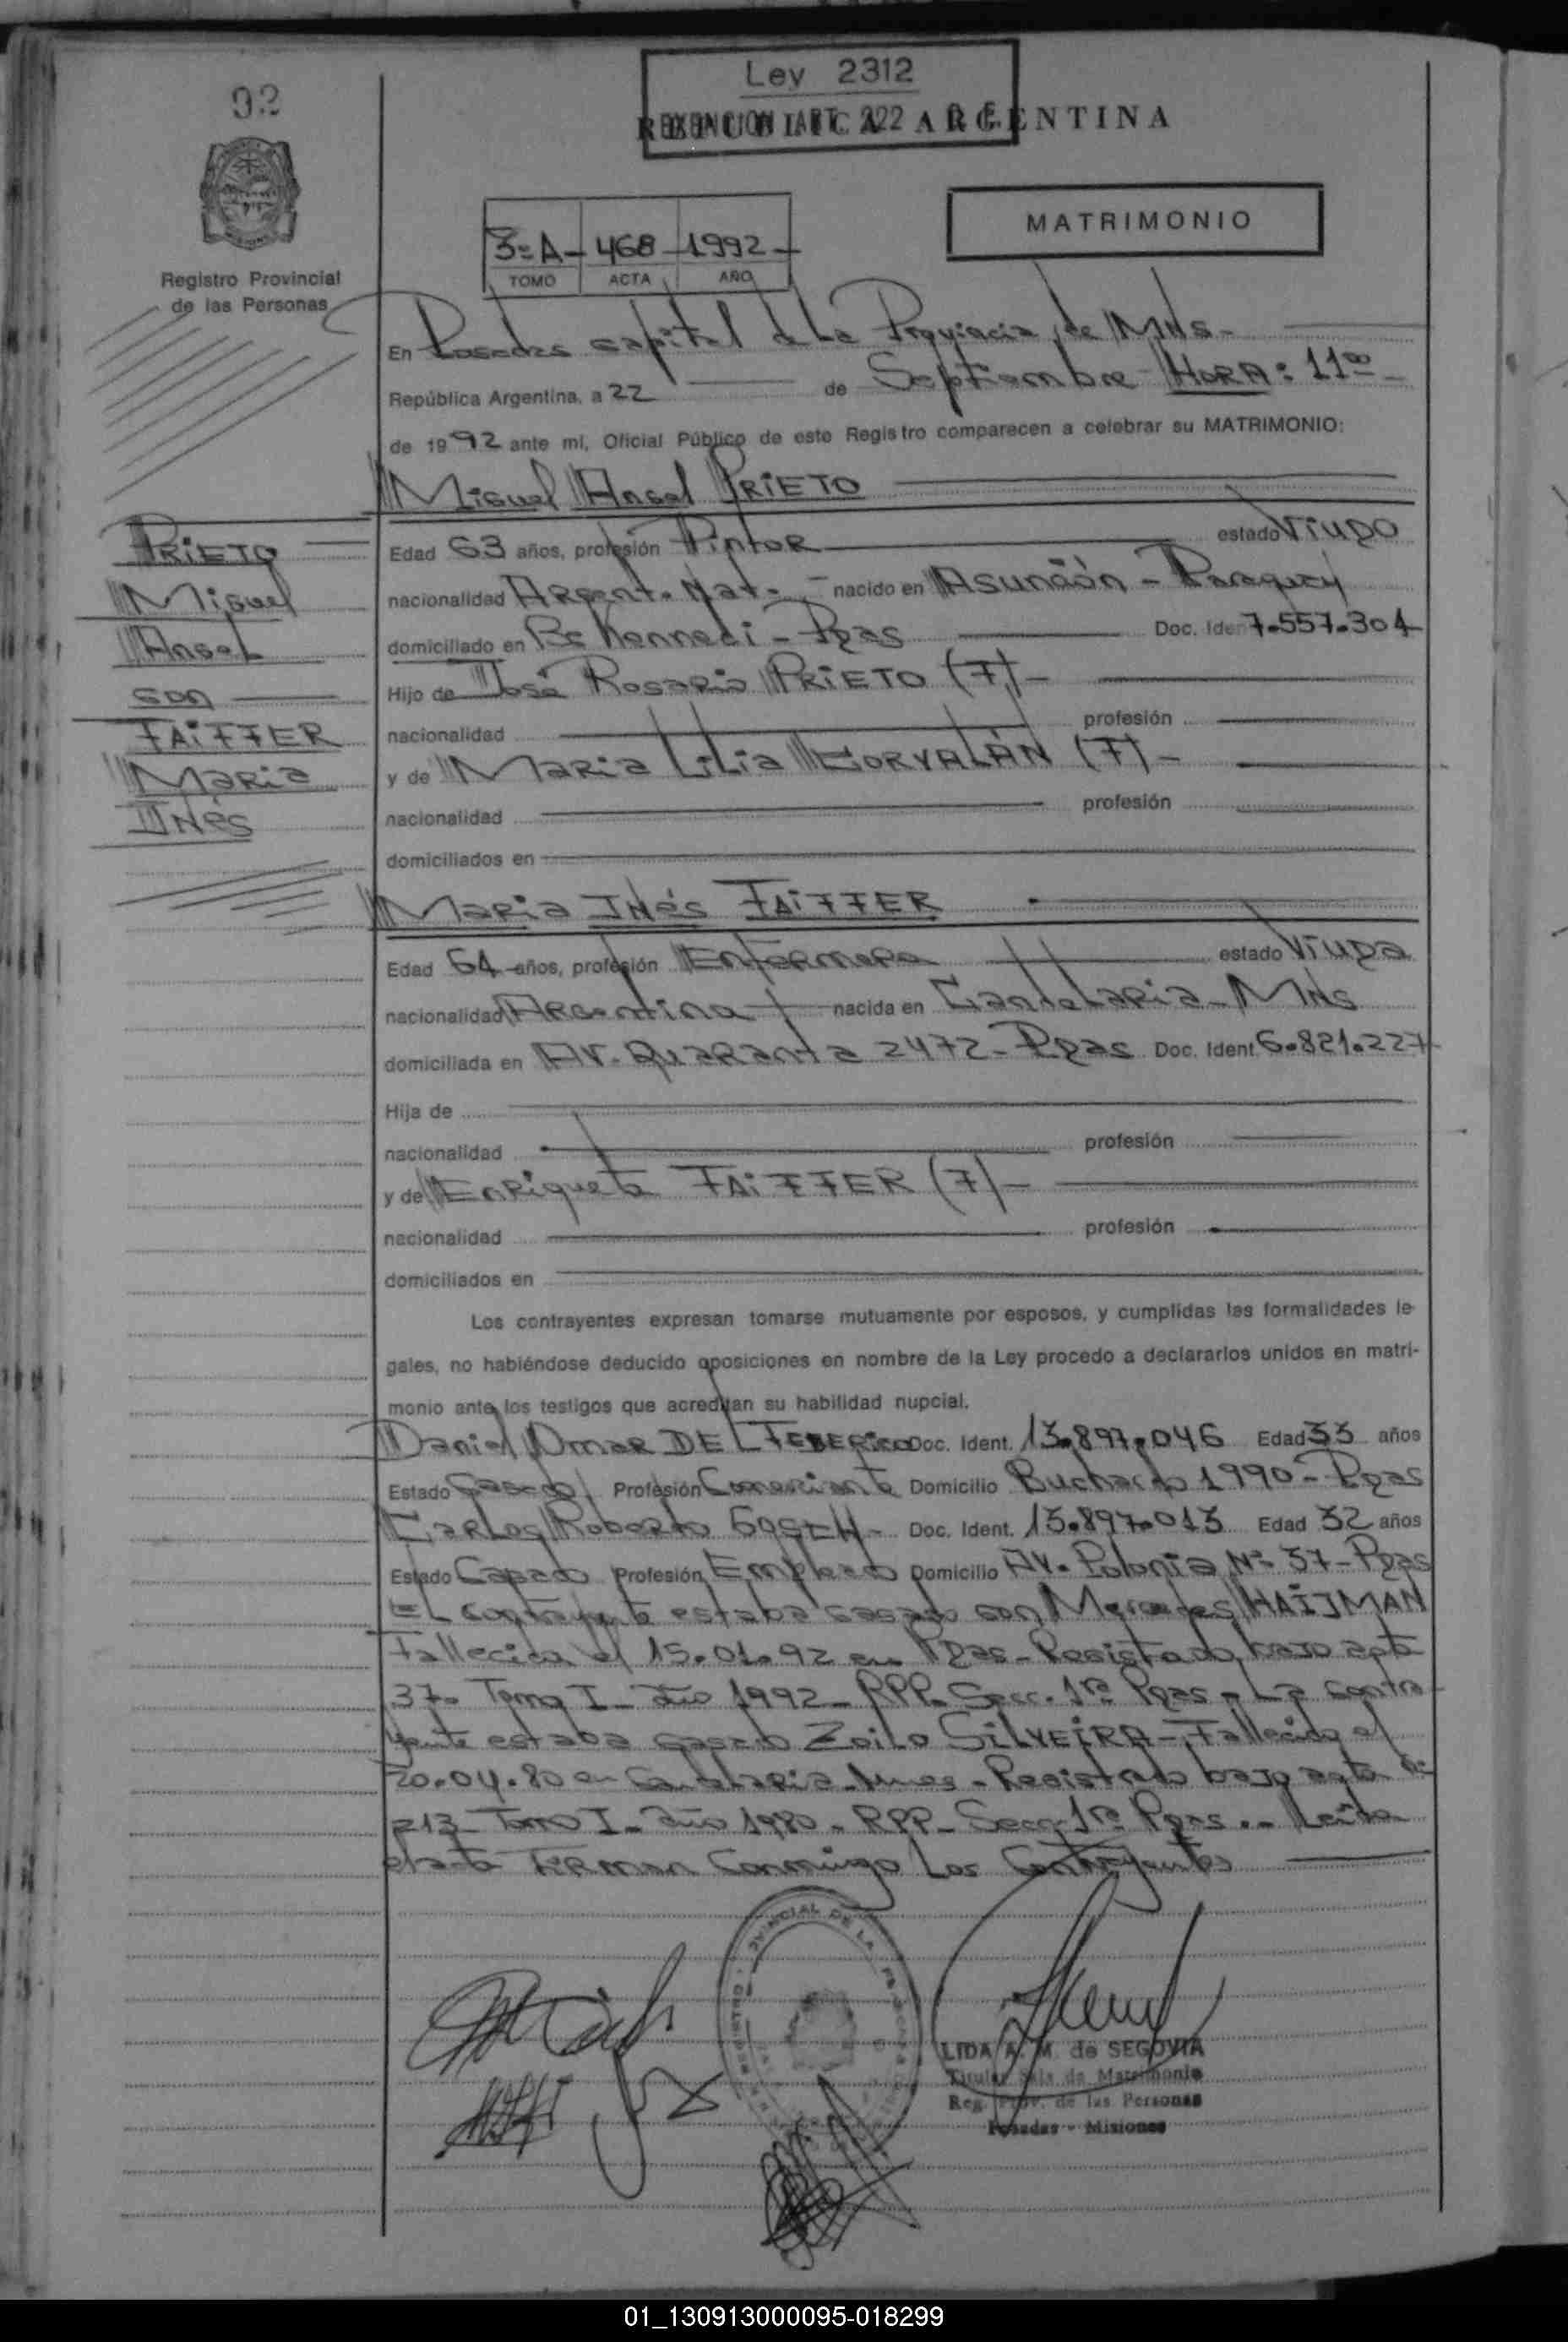 92
Ley 2312
EXENCION ART. 222 C. F.
REPUBLICA ARGENTINA
MATRIMONIO
3=A- 468- 1992-
TOMO ACTA AÑO
Registro Provincial
de las Personas
En Posadas capital de La Provincia de MNs-
República Argentina, a 22 de Septiembre HORA: 11⁰⁰-
de 1992 ante mí, Oficial Público de este Registro comparecen a celebrar su MATRIMONIO:
Miguel Angel PRIETO
PRIETO
Miguel
Angel
con
FAIFFER
Maria
INés
Edad 63 años, profesión Pintor estado Viudo
nacionalidad Argent. Nat. nacido en Asunción - Paraguay
domiciliado en Bº Kennedi - Pdas Doc. Iden 7.557.304
Hijo de José Rosario PRIETO (F)-
nacionalidad profesión
y de Maria LiLia CORVALÁN (F)-
nacionalidad profesión
domiciliados en
Maria INés FAIFFER
Edad 64 años, profesión Enfermera estado Viuda
nacionalidad Argentina nacida en Candelaria - MNs
domiciliada en AV. Quaranta 2472 - Pdas Doc. Ident. 6.821.227
Hija de
nacionalidad profesión
y de Enriqueta FAIFFER (F)-
nacionalidad profesión
domiciliados en
Los contrayentes expresan tomarse mutuamente por esposos, y cumplidas las formalidades le-
gales, no habiéndose deducido oposiciones en nombre de la Ley procedo a declararlos unidos en matri-
monio ante los testigos que acreditan su habilidad nupcial.
Daniel Omar DEL FEDERICO Doc. Ident. 13.897.046 Edad 33 años
Estado Casado Profesión Comerciante Domicilio Buchardo 1990 - Pdas
Carlos Roberto Doc. Ident. 13.897.013 Edad 32 años
Estado Casado Profesión Empleado Domicilio AV. Polonia Nº 37 - Pdas
EL contrayente estaba casado con Mercedes HAIJMAN
Fallecida el 15.01.92 en Pdas - Registrado bajo acta
37- Tomo I - año 1992 - RPP. Secc. 1ra Pdas - La contra
yente estaba casado Zoilo SILVEIRA - Fallecido el
20.04.80 en Candelaria - Registrado bajo acta Nº
213 - Tomo I - año 1980 - RPP - Secc. 1ra Pdas .- Leída
el acta Firman Conmigo Los Contrayentes
LIDA A. M. de SEGOVIA
Titular Sala de Matrimonio
Reg. Prov. de las Personas
Posadas - Misiones
01_130913000095-018299